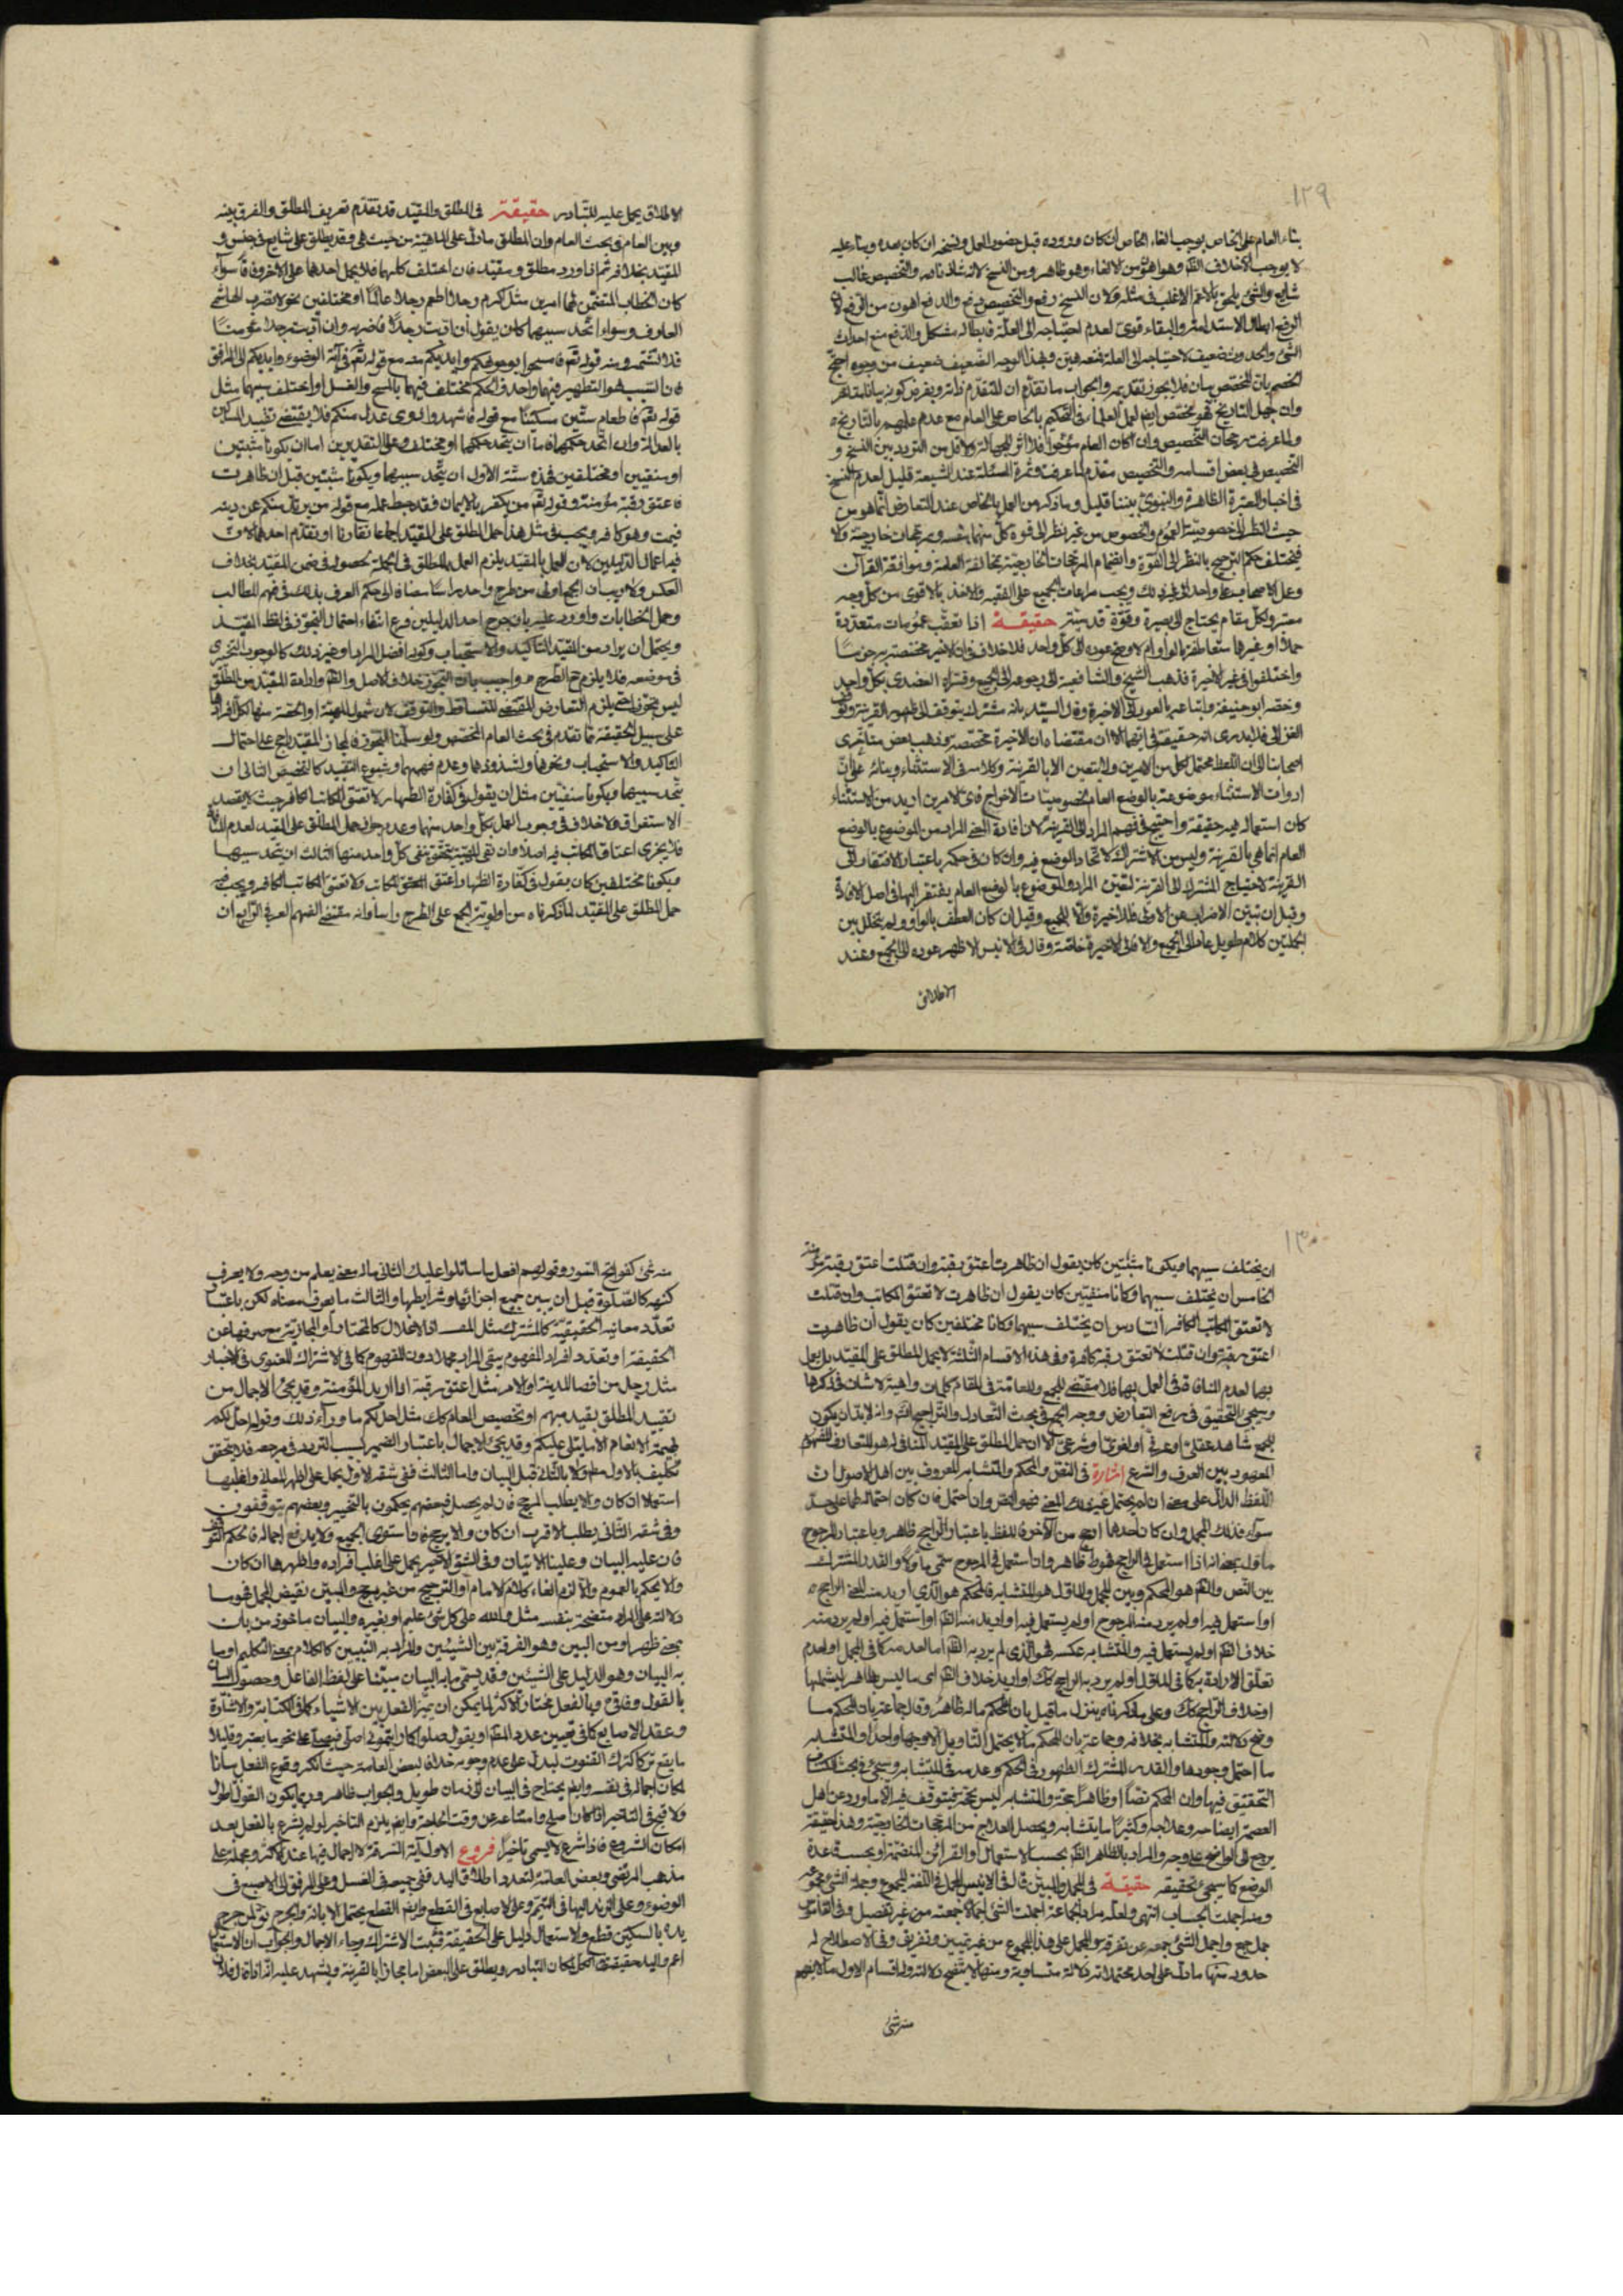 ١٢٩
بناء العام على الخاص يوجب الغاء الخاص ان كان وروده قبل حضور العمل ونسخه ان كان بعده وبناءه عليه
لا يوجب الا خلاف الظم وهو اهون من الالغاء وهو ظاهر ومن النسخ لانه شاذ نادر والتخصيص غالب
شايع والشئ يلحق بالاعم الاغلب في مثله ولان النسخ رفع والتخصيص دفع والدفع اهون من الرفع لان
الرفع ابطال الاستدامة والبقاء قوى لعدم احتياجه الى العلة فابطاله مشكل والدفع منع احداث
الشئ والحدوث ضعيف لاحتياجه الى العلة فمنعه هين وهذا الوجه الضعيف ضعيف من وجوه احتج
الخصم بان المخصص بيان فلا يجوز تقديمه والجواب ما تقدم ان المتقدم ذاته ويفرض كونه بيانا متاخر
وان جهل التاريخ فهو مخصص ايضا لعمل العلماء في التحكيم بالخاص على العام مع عدم علمهم بالتاريخ
ولما عرفت من رجحان التخصيص وان كان العام مؤخرا فلا اثر للجهالة ولا اقل من التردد بين النسخ و
التخصيص في بعض اقسامه والتخصيص مقدم لما عرفت وثمرة المسئلة عند الشيعة قليل لعدم النسخ
في اخبار العترة الظاهرة والنبوى بيننا قليل وما ذكر من العمل بالخاص عند التعارض انما هو من
حيث النظر الى خصوصية العموم والخصوص من غير نظر الى قوة كل منهما بنفسه وبمرجحات خارجية ولا
فيختلف حكم الترجيح بالنظر الى القوة وانضمام المرجحات الخارجية بمخالفة العامة وموافقة القرآن
وعمل الاصحاب بواحد الى غير ذلك ويجب مراعات الجميع على الفقيه والاخذ بالاقوى من كل وجه
معتبر ولكل مقام يحتاج الى بصيرة وقوة قدسية حقيقة اذا تعقب عمومات متعددة
جملا او غيرها متعاطفة بالواو امر لا وصح عوده الى كل واحد فلا خلاف في ان الاخير مختصة به جزما
واختلفوا في غير الاخيرة فذهب الشيخ والشافعية الى رجوعه الى الجميع وفسره العضدى بكل واحد
وخصه ابو حنيفة واتباعه بالعود الى الاخيرة وقال السيد بانه مشترك يتوقف الى ظهور القرينة وتوقف
الغزالى فلا يدرى انه حقيقة في ايهما الا ان مقتضاه ان الاخيرة مختصة به وذهب بعض متاخرى
اصحابنا الى ان اللفظ محتمل لكل من الامرين ولا يتعين الا بالقرينة وكلامه في الاستثناء وبنائه على ان
ادوات الاستثناء موضوعة بالوضع العام لخصوصيات الاخراج فاى الامرين اريد من الاستثناء
كان استعماله فيه حقيقة واحتيج في فهم المراد الى القرينة لان افادة المعنى المراد من الموضوع بالوضع
العام انما هي بالقرينة وليس من الاشتراك لاتحاد الوضع فيه وان كان في حكمه باعتبار الافتقار الى
القرينة لاحتياج المشترك الى القرينة لتعيين المراد والموضوع بالوضع العام يفتقر اليها في اصل الافادة
وقيل ان تبين الاضراب عن الاولى فللاخيرة والا للجميع وقيل ان كان العطف بالواو ولم يتخلل بين
الجملتين كلام طويل عاد الى الجميع والا فالى الاخيرة خاصة وقال في الانيس الاظهر عوده الى الجميع وعند
الاطلاق
الاطلاق يحمل عليه للتبادر حقيقة في المطلق والمقيد قد تقدم تعريف المطلق والفرق بينه
وبين العام في بحث العام وان المطلق ما دل على الماهية من حيث هي وقد يطلق على شايع في جنسه و
المقيد بخلافه ثم اذا ورد مطلق ومقيد فان اختلف حكمهما فلا يحمل احدهما على الاخر وفاقا سواء
كان الخطاب المتضمن لهما امرين مثل اكرم رجلا اطعم رجلا عالما او مختلفين نحو لا تضرب الهاشمى
العارف وسواء اتحد سببهما كان يقول ان اتيت رجلا فاضربه وان اتيت رجلا مؤمنا
فلا تشتمه ومنه قوله تعم فامسحوا بوجوهكم وايديكم منه مع قوله تعم في آية الوضوء وايديكم الى المرافق
فان السبب هو التطهير فيهما واحد والحكم مختلف فيهما بالمسح والغسل او اختلف سببهما مثل
قوله تعم فاطعام ستين مسكينا مع قوله فاشهدوا ذوى عدل منكم فلا يقتضى تقييد المساكين
بالعدالة وان اتحد حكمهما فاما ان يتحد حكمهما او مختلف وعلى التقديرين اما ان يكونا مثبتين
او منفيين او مختلفين فهذه ستة الاول ان يتحد سببهما ويكونا مثبتين قيل ان ظاهرت
فاعتق رقبة مؤمنة وقوله تعم من يكفر بالايمان فقد حبط عمله مع قوله من يرتد منكم عن دينه
فيمت وهو كافر ويجب في مثل هذا حمل المطلق على المقيد اجماعا تقارنا او تقدم احدهما لان
فيه اعمال الدليلين لان العمل بالمقيد يلزم العمل بالمطلق في الجملة لحصوله في ضمن المقيد بخلاف
العكس ولا ريب ان الجمع اولى من طرح واحد راسا مضافا الى حكم العرف بذلك في فهم المطالب
وحمل الخطابات واورد عليه بان طرح احد الدليلين فرع انتفاء احتمال التجوز في لفظ المقيد
ويحتمل ان يراد من القيد التاكيد والاستحباب وكونه افضل المراد وغير ذلك كالوجوب التخييرى
في موضعه فلا يلزم ح الطرح واجيب بان التجوز خلاف الاصل والظم وارادة المقيد من المطلق
ليس بتجوز حتى يلزم التعارض المقتضى للتساقط والتوقف لان شمول المهية او الحصة منها لكل افرادها
على سبيل الحقيقة لما تقدم في بحث العام المخصص ولو سلمنا التجوز فالمجاز المقيد راجح على احتمال
التاكيد والاستحباب ونحوها لشذوذها وعدم فهمها وشيوع التقييد كالتخصيص الثانى ان
يتحد سببهما ويكونا منفيين مثل ان يقول في كفارة الظهار لا تعتق المكاتب الكافر حيث لا يقصد
الاستغراق ولا خلاف في وجوب العمل بكل واحد منهما وعدم جواز حمل المطلق على المقيد لعدم المنافاة
فلا يجزى اعتاق المكاتب فيه اصلا فان نفى المهية يتحقق بنفى كل واحد منها الثالث ان يتحد سببهما
ويكونا مختلفين كان يقول في كفارة الظهار اعتق المكاتب ولا تعتق المكاتب الكافر ويجب فيه
حمل المطلق على المقيد لما ذكرناه من اولوية الجمع على الطرح راسا وانه مقتضى الفهم العرفى الرابع ان
١٣٠
ان يختلف سببهما ويكونا مثبتين كان يقول ان ظاهرت اعتق رقبة وان قتلت اعتق رقبة مؤمنة
الخامس ان يختلف سببهما وكانا منفيين كان يقول ان ظاهرت لا تعتق المكاتب وان قتلت
لا تعتق المكاتب الكافر السادس ان يختلف سببهما وكانا مختلفين كان يقول ان ظاهرت
اعتق رقبة وان قتلت لا تعتق رقبة كافرة وفي هذه الاقسام الثلثة لا يحمل المطلق على المقيد بل يعمل
بهما لعدم المنافاة في العمل بهما فلا مقتضى للجمع وللعامة في المقام كلمات واهية لا شان في ذكرها
وسيجئ التحقيق في رفع التعارض ووجه الجمع في بحث التعادل والتراجيح وانه لا بد ان يكون
للجمع شاهد عقلى او عرفى او لغوى او شرعى الا ان حمل المطلق على المقيد المنافى له هو المتعارف المفهوم
المعهود بين العرف والشرع اشارة في النص والمحكم والمتشابه المعروف بين اهل الاصول ان
اللفظ الدال على معنى ان لم يحتمل غير ذلك المعنى فهو النص وان احتمل فان كان احتماله لهما على حد
سواء فذلك المجمل وان كان احدهما ارجح من الآخر فاللفظ باعتبار الراجح ظاهر وباعتبار المرجوح
ماول بمعنى انه اذا استعمل في الراجح فهو ظاهر وان استعمل في المرجوح سمى ماولا والقدر المشترك
بين النص والظم هو المحكم وبين المجمل والماول هو المتشابه فالمحكم هو الذى اريد منه المعنى الراجح
او استعمل فيه او لم يرد منه المرجوح او لم يستعمل فيه او اريد منه الظم او استعمل فيه او لم يرد منه
خلاف الظم او لم يستعمل فيه والمتشابه عكسه فهو الذى لم يرد به الظم اما لعدمه كما في المجمل او لعدم
تعلق الارادة به كما في الماول او لم يرد به الراجح كك او اريد خلاف الظم اى ما ليس بظاهر ليشملها
او خلاف الراجح كك وعلى ما ذكرناه ينزل ما قيل بان المحكم ماله ظاهر وقال جماعة بان المحكم ما
وضح دلالته والمتشابه بخلافه وجماعة بان المحكم ما لا يحتمل التاويل الا وجها واحدا والمتشابه
ما احتمل وجوها والقدر المشترك الظهور في المحكم وعدمه في المتشابه وسيجئ في بحث الكتاب
التحقيق فيها وان المحكم نصا او ظاهرا حجة والمتشابه ليس بحجة فيتوقف فيه الا ما ورد عن اهل
العصمة ايضاحه وعلاجه وكثيرا ما يتشابه ويحصل العلاج من المرجحات الخارجية وهذا حقيقة
يرجع الى الواضح على وجه والمراد بالظاهر الظم بحسب الاستعمال او القرائن المنضمة او بحسب قاعدة
الوضع كما سيجئ تحقيقه حقيقة في المجمل والمبين قال في الانيس المجمل في اللغة المجموع وجملة الشئ مجموعه
ومنه اجملت الحساب انتهى ولعله مراد الجماعة اجملت الشئ اجمالا جمعته من غير تفصيل وفي القاموس
جمل جمع واجمل الشئ جمعه عن تفرقة والمجمل على هذا المجموع من غير تبيين وتفريق وفي الاصطلاح له
حدود منها ما دل على احد محتملاته دلالة متساوية ومنها ما لا يتضح دلالته وله اقسام الاول ما لا يفهم
منه شئ
منه شئ كفواتح السور وقولهم افعل ما ساتلوا عليك الثانى ماله معنى يعلم من وجه ولا يعرف
كنهه كالصلوة قبل ان يبين جميع اجزائها وشرايطها والثالث ما يعرف معناه لكن باعتبار
تعدد معانيه الحقيقية كالمشترك مثل الاخلال كالمختار او المجازية مع صرفها عن
الحقيقة او تعدد افراد المفهوم يبقى المراد مجملا دون المفهوم كما في الاشتراك المعنوى في الاخبار
مثل رجل من اقصا المدينة او الامر مثل اعتق رقبة اذا اريد المؤمنة وقد يجئ الاجمال من
تقييد المطلق بقيد مبهم او تخصيص العام كك مثل احل لكم ما وراء ذلك وقوله احل لكم
بهيمة الانعام الا ما يتلى عليكم وقد يجئ الاجمال باعتبار الضمير لسبب التردد في مرجعه فلا يتحقق
تكليف بالاول ولا بالثانى قبل البيان واما الثالث ففي شقه الاول يحمل على اظهر المعانى واغلبها
استعمالا ان كان والا يطلب المرجح فان لم يحصل فبعضهم يحكمون بالتخيير وبعضهم يتوقفون
وفي شقه الثانى يطلب الاقرب ان كان والا يرجع فاستوى الجميع ولا يدفع اجماله فالحكم التوقف
فان عليه البيان وعلينا الاتيان وفي الشق الاخير يحمل على اغلب افراده واظهرها ان كان
والا يحكم بالعموم والا لزم الغاء كلام الامام او الترجيح من غير مرجح والمبين نقيض المجمل فهو ما
دلالته على المراد متضحة بنفسه مثل والله على كل شئ عليم او بغيره والبيان ماخوذ من بان
بمعنى ظهر او من البين وهو الفرقة بين الشيئين والمراد به التبيين كالكلام بمعنى التكليم او ما
به البيان وهو الدليل على الشيئين وقد يسمى ما به البيان مبينا على لفظ الفاعل وحصول البيان
بالقول وفاقى وبالفعل مختار الاكثر لما يمكن ان يميز الفعل بين الاشياء كما في الكتابة والاشارة
وعقد الاصابع كما في تعيين عدد الشهر او يقول صلوا كما رايتمونى اصلى فيفهم على نحو ما يعتبر وقليلا
ما يقع تركا كترك القنوت ليدل على عدم وجوبه خلافا لبعض العامة حيث انكر وقوع الفعل بيانا
لمكان اجماله في نفسه وايضا يحتاج في البيان الى زمان طويل والجواب ظاهر وربما يكون القول اطول
ولا قبح في التاخير اذا كان اصلح وامتناعه عن وقت الحاجة وايضا يلزم التاخير لو لم يشرع بالفعل بعد
امكان الشروع فاذا شرع لا يسمى تاخيرا فروع الاول آية السرقة لا اجمال فيها عند الاكثر ومجملة على
مذهب المرتضى وبعض العامة لتعدد اطلاق اليد ففي جميعه في الغسل وعلى المرفق الى الاصبع في
الوضوء وعلى الزند اليها في التيمم وعلى الاصابع في القطع وايضا القطع يحتمل الابانة والجرح نحو جرح
يده بالسكين قطع والاستعمال دليل على الحقيقة فثبت الاشتراك وجاء الاجمال والجواب ان الاستعمال
اعم واليد حقيقة في الكل لمكان التبادر ويطلق على البعض اما مجازا بالقرينة ويشهد عليه انه اذا قال فلان